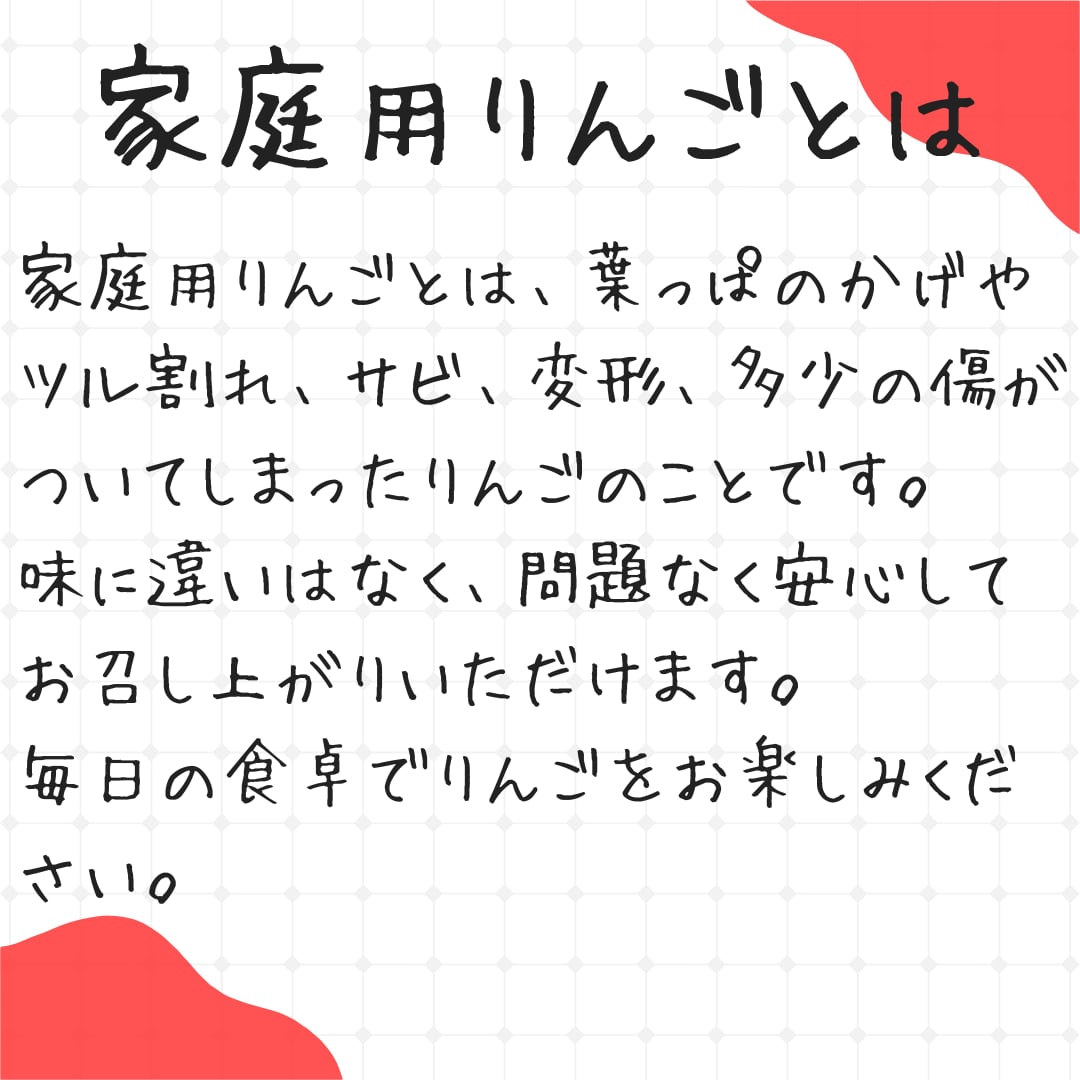 家庭用りんごとは
家庭用りんごとは、葉っぱのかげや
ツル割れ、サビ、変形、多少の傷が
ついてしまったりんごのことです。
味に違いはなく、問題なく安心して
お召し上がりいただけます。
毎日の食卓でりんごをお楽しみくだ
さい。